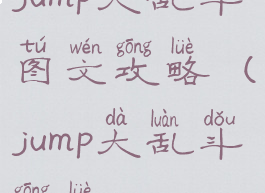 jump大乱斗
tú wén gōng lüè
图文攻略（
dà luàn dǒu
jump大乱斗
gōng lüè